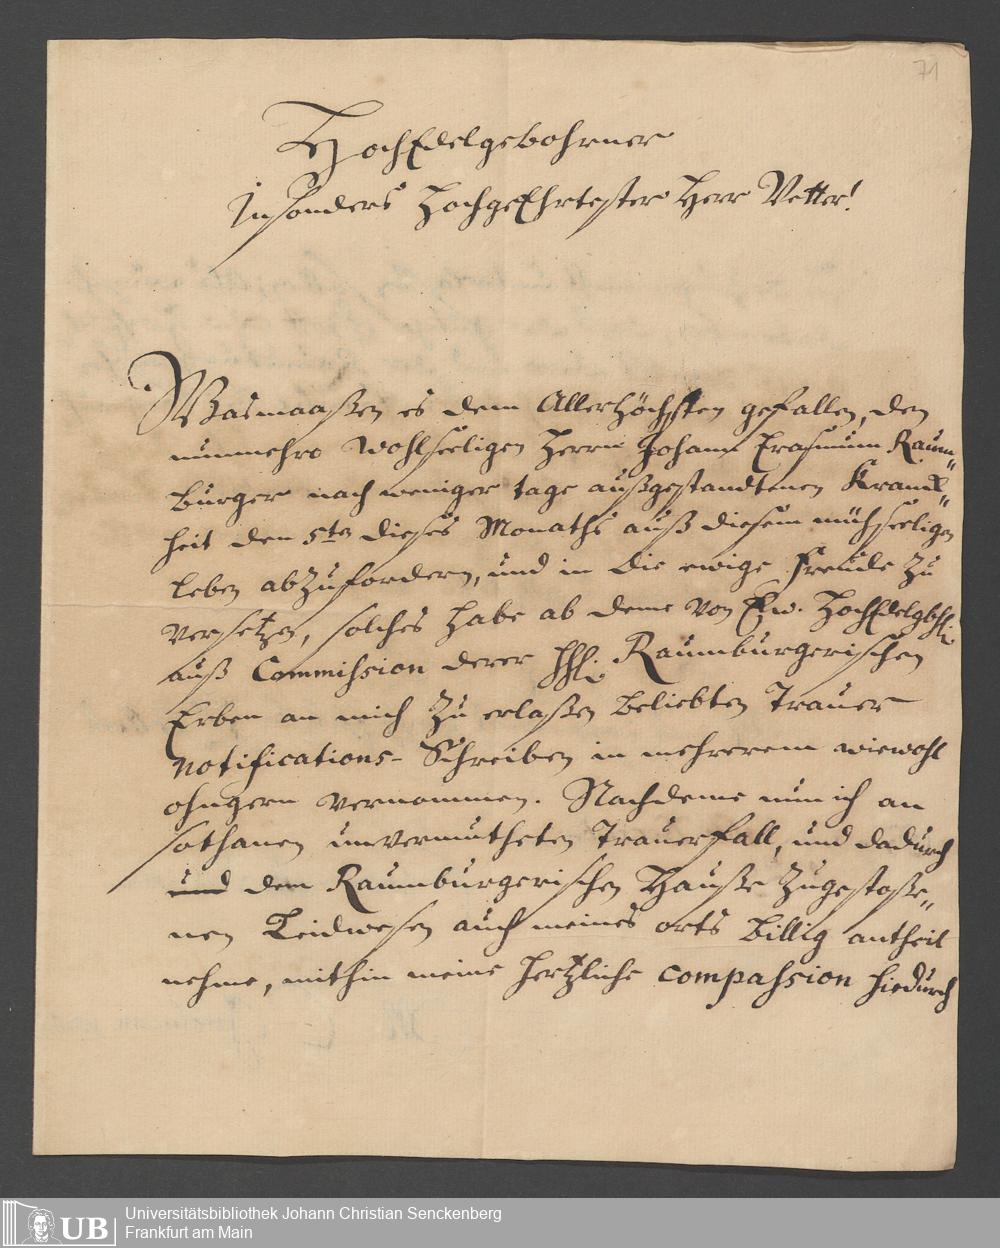 71
HochEdelgebohrner
Insonders HochgeEhrtester Herr Vetter!
Wasmaaßen es dem Allerhöchsten gefallen, den
nunmehro Wohlseeligen Herrn Johann Erasmum Raum„
burger nach weniger tage außgestandtenen Kranck„
heit den 5ten dieses Monaths auß diesem mühseeligen
leben abzufordern, und in die ewige Freude zu
versetzen, solches habe ab deme von Ew. HochEdelgbh.
auß Commission derer HHl. Raumburgerischen
Erben an mich zu erlaßen beliebten Trauer
Notifications-Schreiben in mehrerem wiewohl
ohngern vernommen. Nachdeme nun ich an
sothanen unvermutheten Trauerfall, und dadurch
und dem Raumburgerischen Hauße zugestoße„
nen Leidwesen auch meines orts billig antheil
nehme, mithin meine hertzliche compassion hiedurch
UB
Universitätsbibliothek Johann Christian Senckenberg
Frankfurt am Main